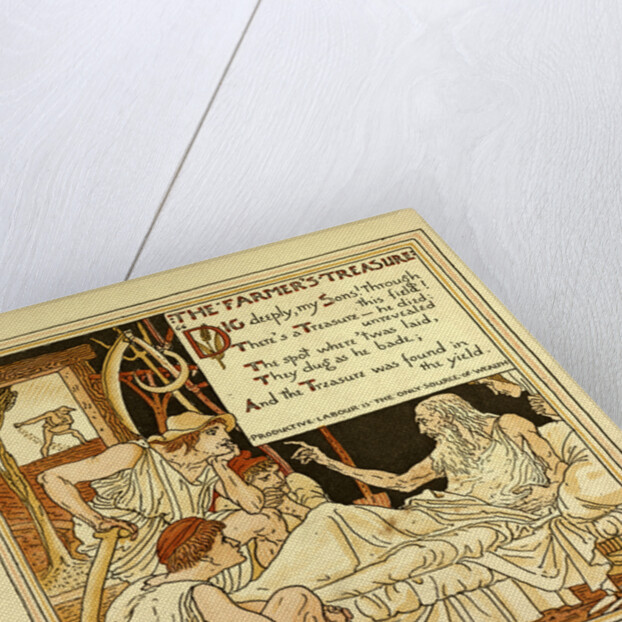 THE FARMER'S TREASURE
"DIG deeply, my Sons! through
this field!
There's a Treasure — he died;
unrevealed
The spot where 'twas laid,
They dug as he bade;
And the Treasure was found in
the yield.
PRODUCTIVE LABOUR IS THE ONLY SOURCE OF WEALTH